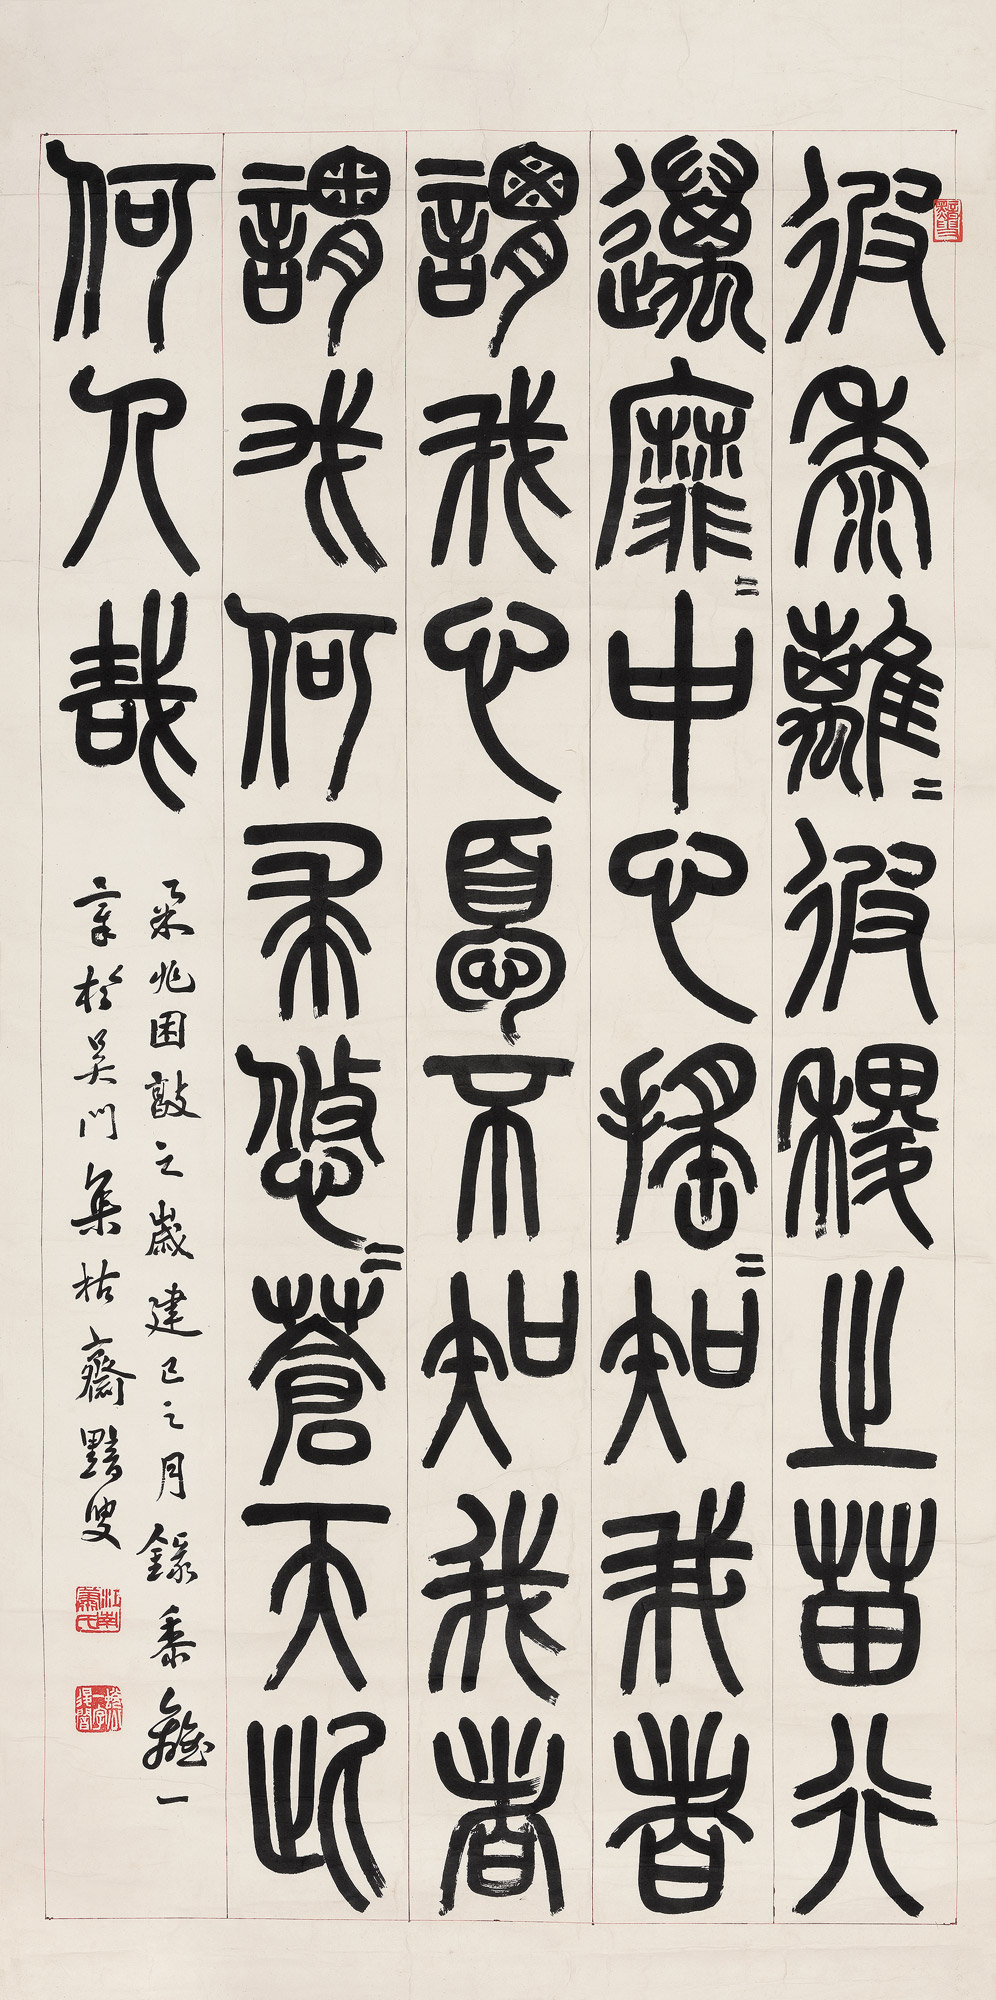 彼黍離=彼稷之苗行
邁靡=中心搖=知我者
謂我心憂不知我者
謂我何求悠=蒼天此
何人哉
柔兆困敦之歲建巳之月錄黍離一
章於吳門集枯齋黯叟
江南蕭氏